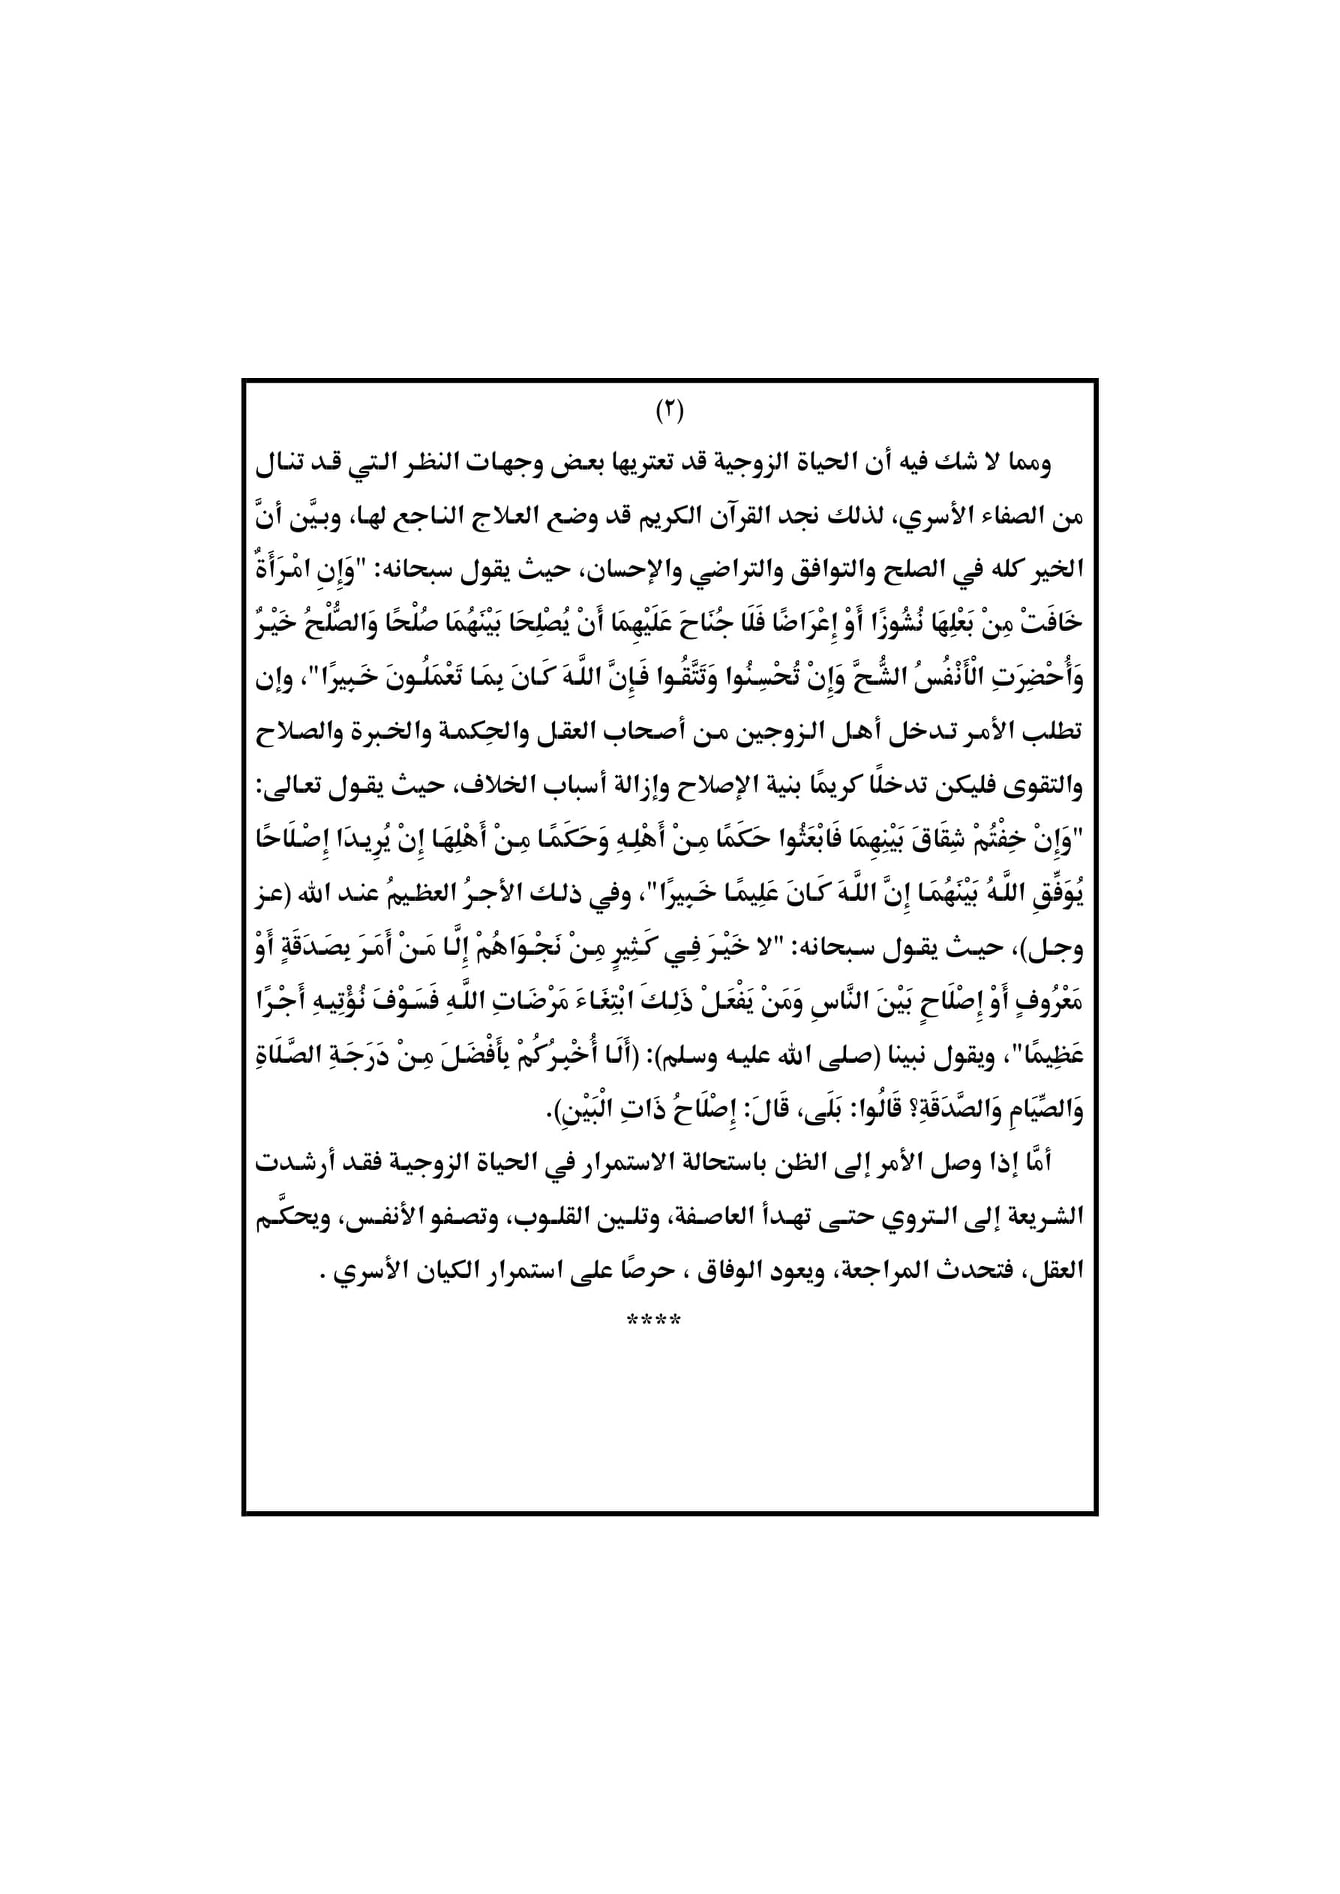 (٢)
ومما لا شك فيه أن الحياة الزوجية قد تعتريها بعض وجهات النظر التي قد تنال
من الصفاء الأسري، لذلك نجد القرآن الكريم قد وضع العلاج الناجع لها، وبيَّن أنَّ
الخير كله في الصلح والتوافق والتراضي والإحسان، حيث يقول سبحانه: "وَإِنِ امْرَأَةٌ
خَافَتْ مِنْ بَعْلِهَا نُشُوزًا أَوْ إِعْرَاضًا فَلَا جُنَاحَ عَلَيْهِمَا أَنْ يُصْلِحَا بَيْنَهُمَا صُلْحًا وَالصُّلْحُ خَيْرٌ
وَأُحْضِرَتِ الْأَنْفُسُ الشُّحَّ وَإِنْ تُحْسِنُوا وَتَتَّقُوا فَإِنَّ اللَّهَ كَانَ بِمَا تَعْمَلُونَ خَبِيرًا"، وإن
تطلب الأمر تدخل أهل الزوجين من أصحاب العقل والحِكمة والخبرة والصلاح
والتقوى فليكن تدخلًا كريمًا بنية الإصلاح وإزالة أسباب الخلاف، حيث يقول تعالى:
"وَإِنْ خِفْتُمْ شِقَاقَ بَيْنِهِمَا فَابْعَثُوا حَكَمًا مِنْ أَهْلِهِ وَحَكَمًا مِنْ أَهْلِهَا إِنْ يُرِيدَا إِصْلَاحًا
يُوَفِّقِ اللَّهُ بَيْنَهُمَا إِنَّ اللَّهَ كَانَ عَلِيمًا خَبِيرًا"، وفي ذلك الأجرُ العظيمُ عند الله (عز
وجل)، حيث يقول سبحانه: "لا خَيْرَ فِي كَثِيرٍ مِنْ نَجْوَاهُمْ إِلَّا مَنْ أَمَرَ بِصَدَقَةٍ أَوْ
مَعْرُوفٍ أَوْ إِصْلَاحٍ بَيْنَ النَّاسِ وَمَنْ يَفْعَلْ ذَلِكَ ابْتِغَاءَ مَرْضَاتِ اللَّهِ فَسَوْفَ نُؤْتِيهِ أَجْرًا
عَظِيمًا"، ويقول نبينا (صلى الله عليه وسلم): (أَلَا أُخْبِرُكُمْ بِأَفْضَلَ مِنْ دَرَجَةِ الصَّلَاةِ
وَالصِّيَامِ وَالصَّدَقَةِ؟ قَالُوا: بَلَى، قَالَ: إِصْلَاحُ ذَاتِ الْبَيْنِ).
أمَّا إذا وصل الأمر إلى الظن باستحالة الاستمرار في الحياة الزوجية فقد أرشدت
الشريعة إلى التروي حتى تهدأ العاصفة، وتلين القلوب، وتصفو الأنفس، ويحكَّم
العقل، فتحدث المراجعة، ويعود الوفاق ، حرصًا على استمرار الكيان الأسري .
****